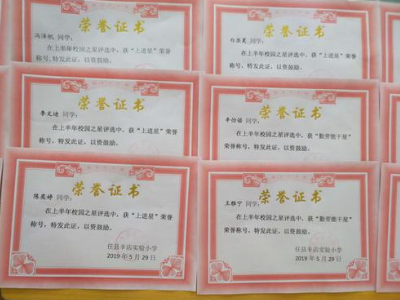 荣誉证书
同学:
在上半年校园之星评选中,获“上进星”荣誉
称号,特发此证,以资鼓励。
同学:
称号,特发此证,以资鼓励。
荣誉证书
同学:
在上半年校园之星评选中,获“上进星”荣誉
称号,特发此证,以资鼓励。
荣誉证书
同学:
在上半年校园之星评选中,获“勤劳能干星”
荣誉称号,特发此证,以资鼓励。
荣誉证书
同学:
在上半年校园之星评选中,获“上进星”荣誉
称号,特发此证,以资鼓励。
任县丰店实验小学
2019年5月29日
荣誉证书
王雅宁 同学:
在上半年校园之星评选中,获“勤劳能干星”
荣誉称号,特发此证,以资鼓励。
任县丰店实验小学
2019年5月29日